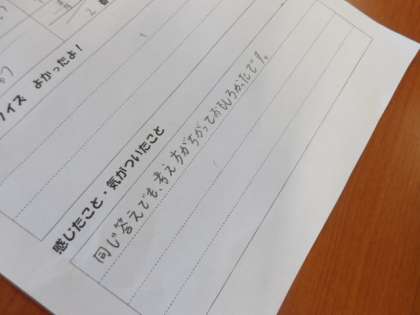 イス よかったよ！
感じたこと・気がついたこと
同じ答えでも、考え方がちがっておもしろかったです。